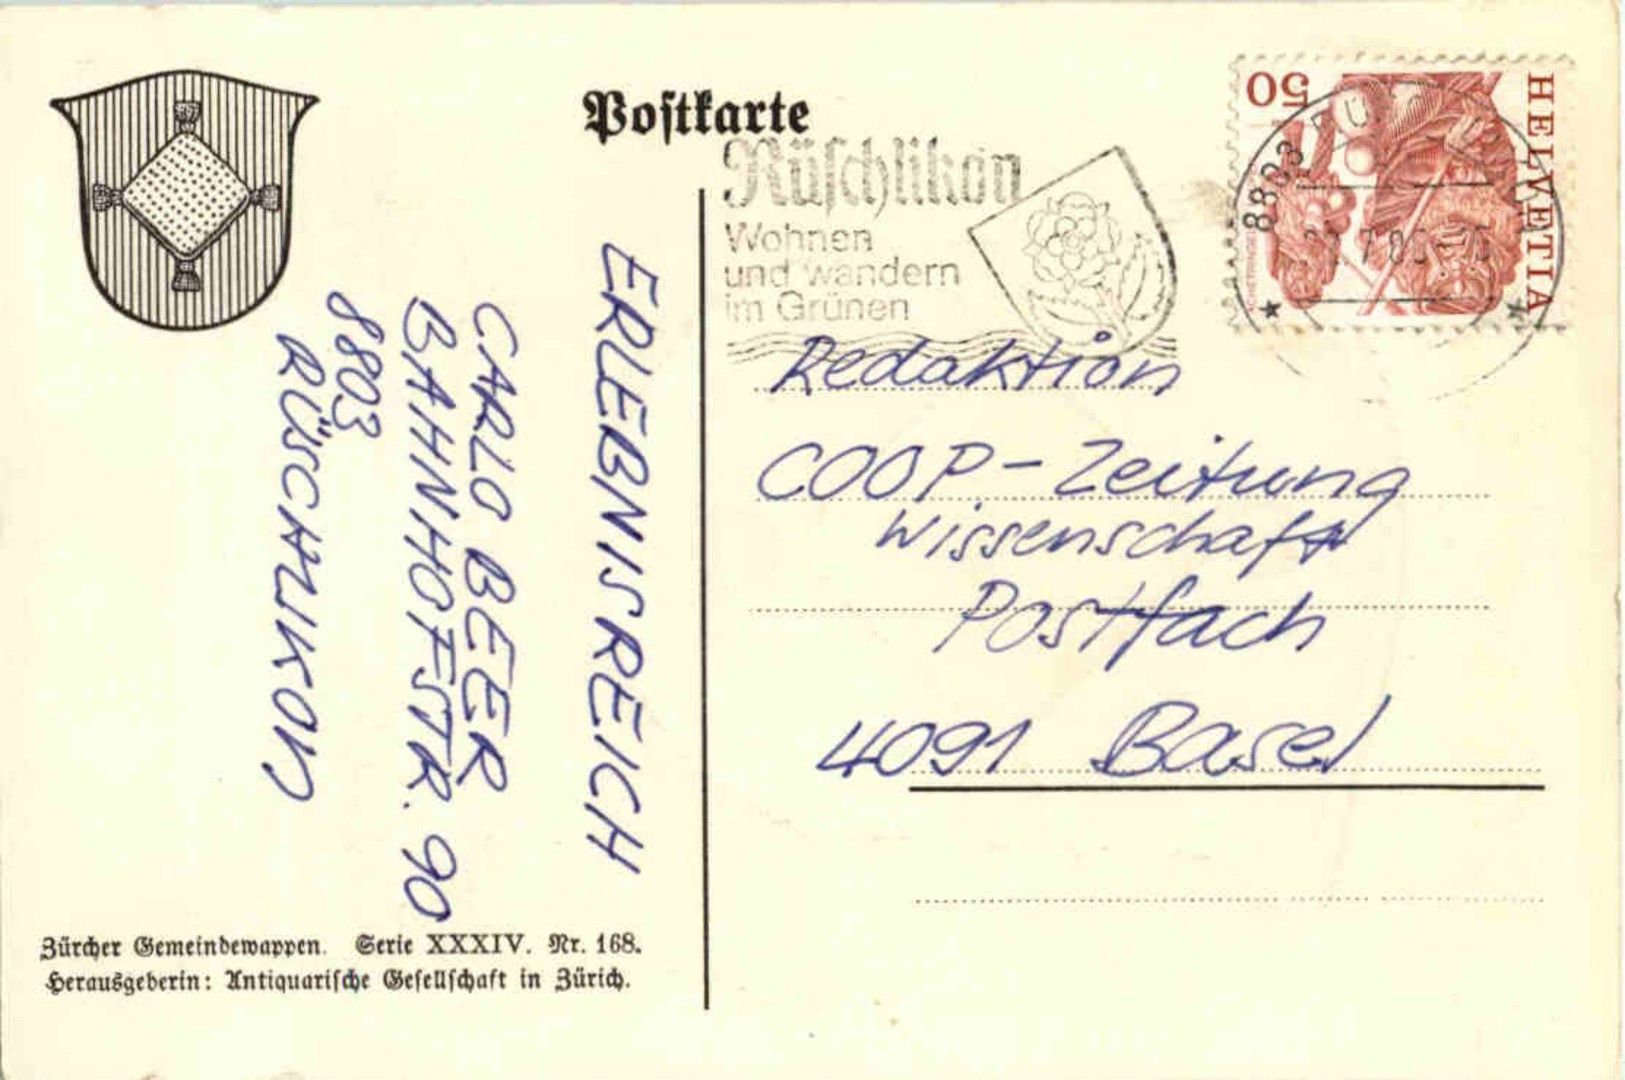 Postkarte
Rüschlikon
Wohnen
und wandern
im Grünen
50
HELVETIA
8803
Redaktion
COOP-Zeitung
Wissenschaft
Postfach
4091 Basel
ERLEBNISREICH
CARLO BEER
BAHNHOFSTR. 90
8803
RÜSCHLIKON
Zürcher Gemeindewappen. Serie XXXIV. Nr. 168.
Herausgeberin: Antiquarische Gesellschaft in Zürich.